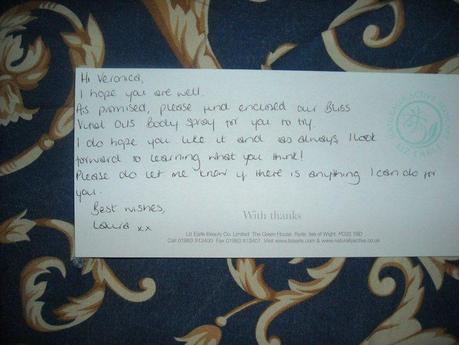 Hi Veronica,
I hope you are well.
As promised, please find enclosed our Bliss
Vital Oils Body Spray for you to try.
I do hope you like it and as always, I look
forward to learning what you think!
Please do let me know if there is anything I can do for
you.
Best wishes,
Laura xx
With thanks
Liz Earle Beauty Co. Limited The Green House Ryde Isle of Wight PO33 1BD
Call 01983 813900 Fax 01983 Visit www.lizearle.com & www.naturallyactive.co.uk
LIZ EARLE